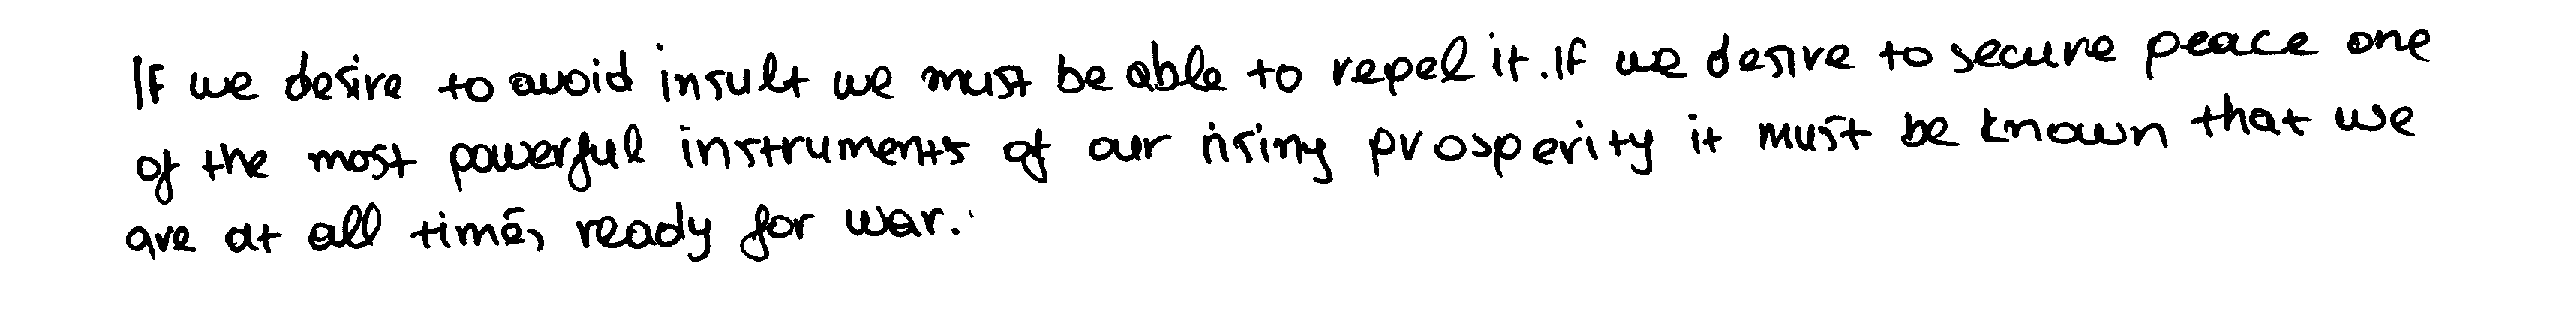 If we desire to avoid insult we must be able to repel it. If we desire to secure peace one
of the most powerful instruments of our rising prosperity it must be known that we
are at all times ready for war.